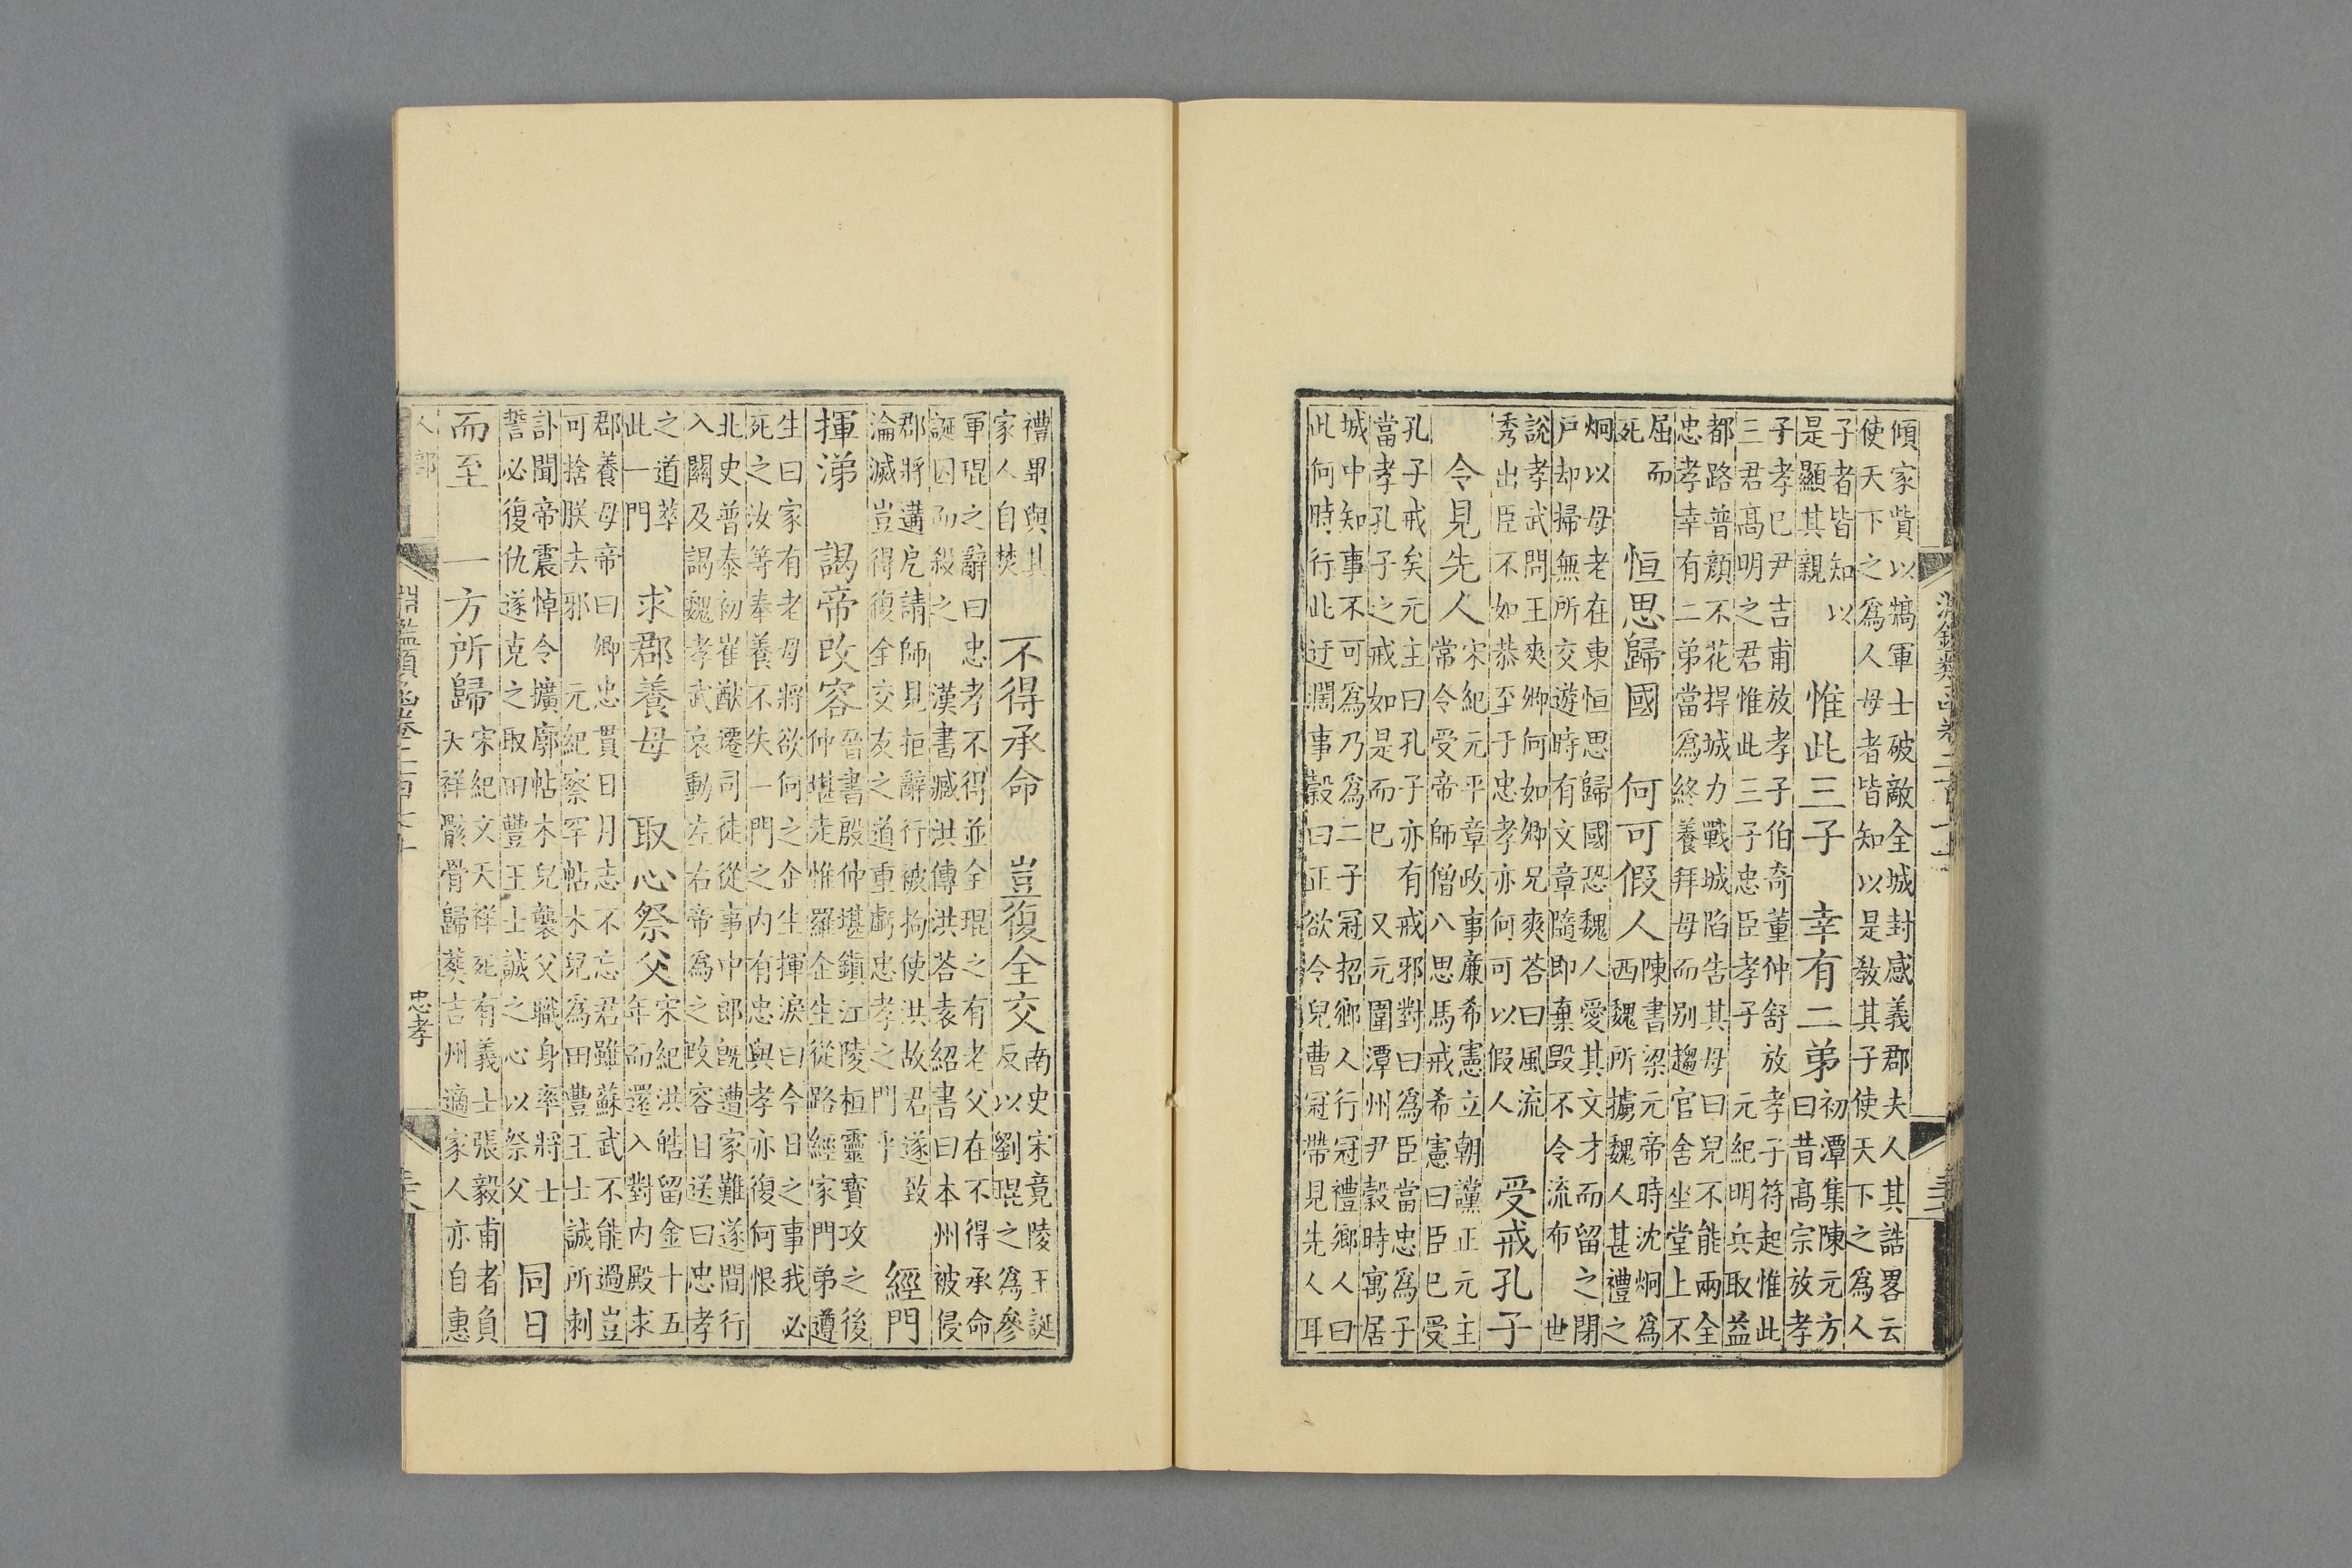 傾家貲以犒軍士破敵全城封感義郡夫人其誥畧云
使天下之爲人母者皆知以是敎其子使天下之爲人
子者皆知以
是顯其親
惟此三子
幸有二弟
初潭集陳元方
曰昔高宗放孝
子孝已尹吉甫放孝子伯奇董仲舒放孝子符起惟此
三君高明之君惟此三子忠臣孝子
元紀明兵取益
都路普顏不花捍城力戰城陷告其母曰兒不能兩全
忠孝幸有二弟當爲終養拜母而别趨官舍坐堂上不
屈而
死
恒思歸國
何可假人
陳書梁元帝時沈炯爲
西魏所擄魏人甚禮之
炯以母老在東恒思歸國恐魏人愛其文才而留之閉
戸却掃無所交遊時有文章隨即棄毀不令流布
世
說孝武問王爽卿何如卿兄爽荅曰風流
秀出臣不如恭至于忠孝亦何可以假人
受戒孔子
令見先人
宋紀元平章政事亷希憲立朝讜正元主
常令受帝師僧八思馬戒希憲曰臣已受
孔子戒矣元主曰孔子亦有戒邪對曰爲臣當忠爲子
當孝孔子之戒如是而已
又元圍潭州尹穀時寓居
城中知事不可爲乃爲二子冠招鄉人行冠禮鄉人曰
此何時行此迂濶事穀曰正欲令兒曹冠帶見先人耳
禮畢與其
家人自焚
不得承命
豈復全交
南史宋竟陵王誕
反以劉琨之爲參
軍琨之辭曰忠孝不得並全琨之有老父在不得承命
誕因而殺之
漢書臧洪傳洪荅袁紹書曰本州被侵
郡將遘戹請師見拒辭行被拘使洪故君遂致
淪滅豈得復全交友之道重虧忠孝之門乎
經門
揮涕
謁帝改容
晉書殷仲堪鎭江陵桓靈寶攻之後
仲堪走惟羅企生從路經家門弟遵
生曰家有老母將欲何之企生揮淚曰今日之事我必
死之汝等奉養不失一門之内有忠與孝亦復何恨
北史普泰初崔猷遷司徒從事中郎旣遭家難遂間行
入關及謁魏孝武哀動左右帝爲之改容目送曰忠孝
之道萃
此一門
求郡養母
取心祭父
宋紀洪皓留金十五
年而還入對内殿求
郡養母帝曰卿忠貫日月志不忘君雖蘇武不能過豈
可捨朕去邪
元紀察罕帖木兒爲田豐王士誠所刺
訃聞帝震悼令擴廓帖木兒襲父職身率將士
誓必復仇遂克之取田豐王士誠之心以祭父
同日
而至
一方所歸
宋紀文天祥死有義士張毅甫者負
天祥骸骨歸葬吉州適家人亦自惠
人部
淵鑑類函卷二百七十一
忠孝